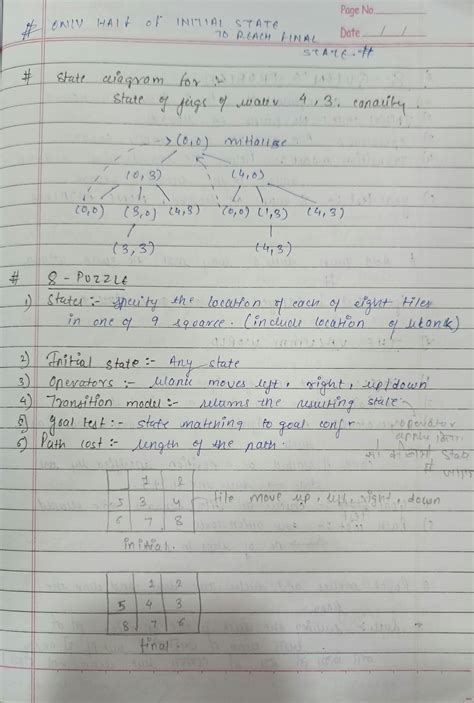 Page No.
Date / /
# ONLY HALF OF INITIAL STATE
TO REACH FINAL
STATE. #
# State diagram for :-
State of jugs of water 4, 3. capacity.
→ (0,0) initialise
(0,3) (4,0)
(0,0) (3,0) (4,3) (0,0) (1,3) (4,3)
(3,3) (4,3)
# 8 - PUZZLE
1) States :- specify the location of each of eight tiles
in one of 9 square. (include location of blank)
2) Initial state :- Any state
3) Operators :- blank moves left, right, up/down
4) Transition model :- returns the resulting state
5) goal test :- state matching to goal conf
operator
apply
6) Path cost :- length of the path.
1 2
5 3 4 tile move up, left, right, down
6 7 8
initial.
1 2
5 4 3
8 7 6
final